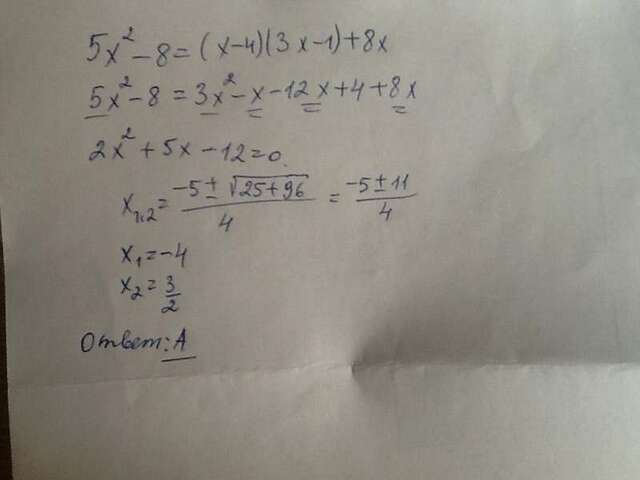 5x² - 8 = (x-4)(3x-1) + 8x
5x² - 8 = 3x² - x - 12x + 4 + 8x
2x² + 5x - 12 = 0.
x₁,₂ = (-5 ± √(25+96))/4 = (-5 ± 11)/4
x₁ = -4
x₂ = 3/2
Ответ: А